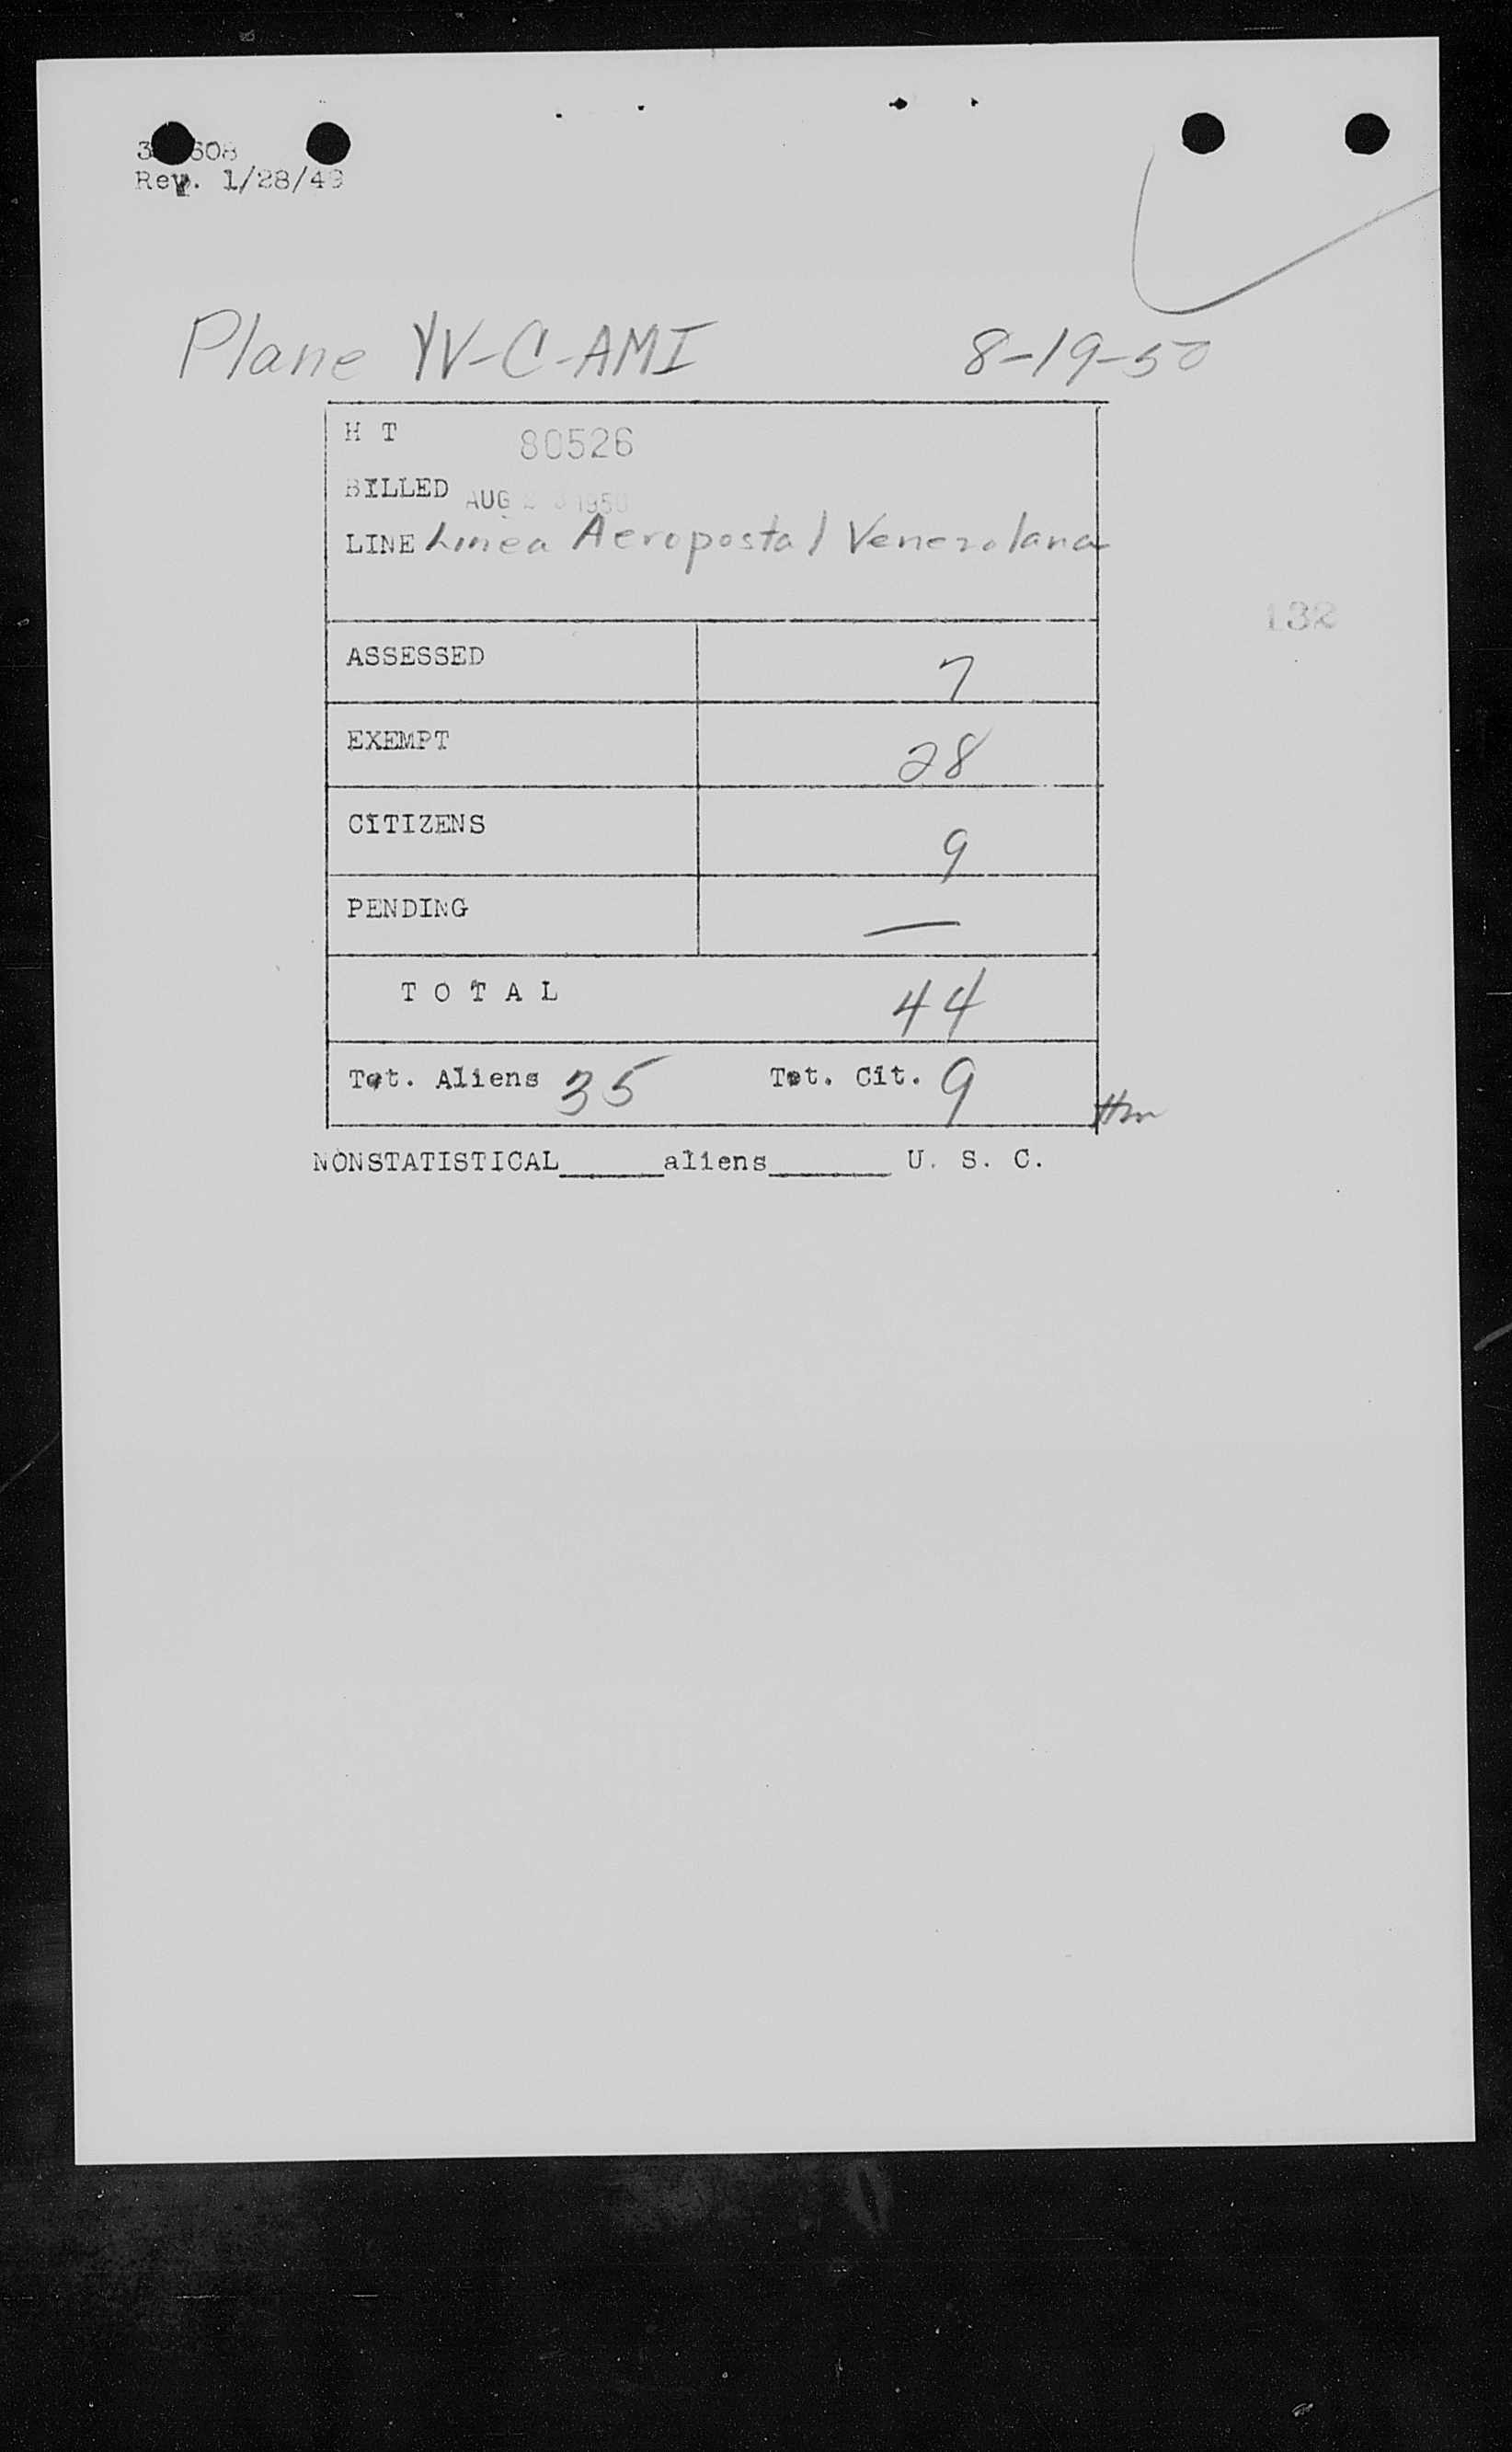 608
Rev. 1/28/49
Plane YV-C-AMI 8-19-50
H T 80526
BILLED AUG 1950
LINE Linea Aeropostal Venezolana
132
ASSESSED 7
EXEMPT 28
CITIZENS 9
PENDING —
T O T A L 44
Tot. Aliens 35 Tot. Cit. 9
NONSTATISTICAL______aliens_______ U. S. C.